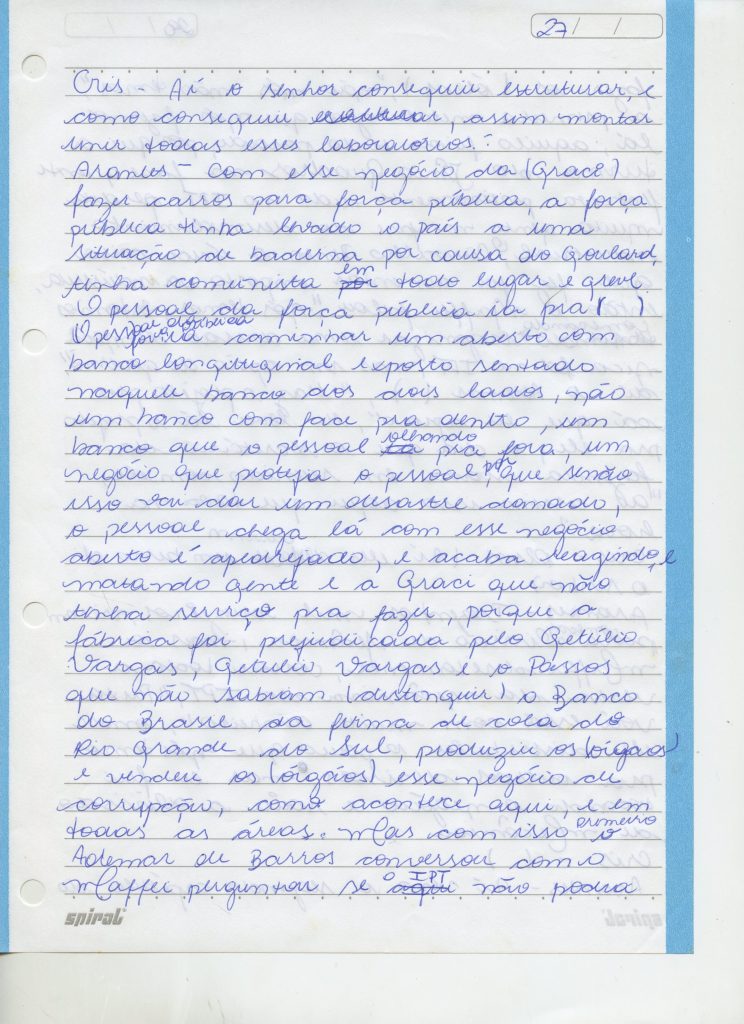 27/ /
Cris - Aí o senhor conseguiu estruturar, e
como conseguiu estruturar, assim montar
unir todas esses laboratórios.:
Arantes - com esse negócio da (Graci)
fazer carros para força pública, a força
pública tinha levado o país a uma
situação de baderna por causa do Goulard,
tinha comunista por em todo lugar e greve.
O pessoal da força pública ia pra ( )
O pessoal da força pública ia caminhar um aberto com
banco longituginal exposto sentado
naquele banco dos dois lados, não
um banco com face pra dentro, um
banco que o pessoal olhando pra fora, um
negócio que proteja o pessoal, por que senão
isso vai dar um desastre danado,
o pessoal chega lá com esse negócio
aberto é apedrejado, e acaba reagindo, e
matando gente e a Graci que não
tinha serviço pra fazer, porque a
fábrica foi prejudicada pelo Getúlio
Vargas, Getulio Vargas e o Passos
que não sabiam (distinguir) o Banco
do Brasil da firma de cola do
Rio Grande do Sul, produziu os (órgãos)
e vendeu os (órgãos) esse negócio de
corrupção, como acontece aqui, e em
todas as áreas. Mas com isso primeiro o
Ademar de Barros conversou com o
Maffei perguntar se o aqui IPT não podia
spiral